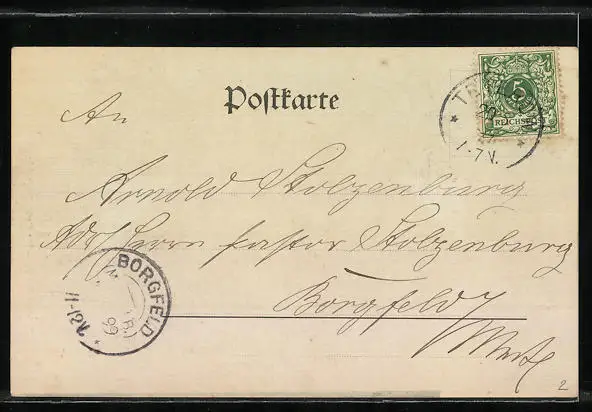 Postkarte
An
Arnold Stolzenburg
Adr. Herrn Pastor Stolzenburg
Borgfeld
5
REICHSPOST
1-7V.
BORGFELD
11-12V.
99
2